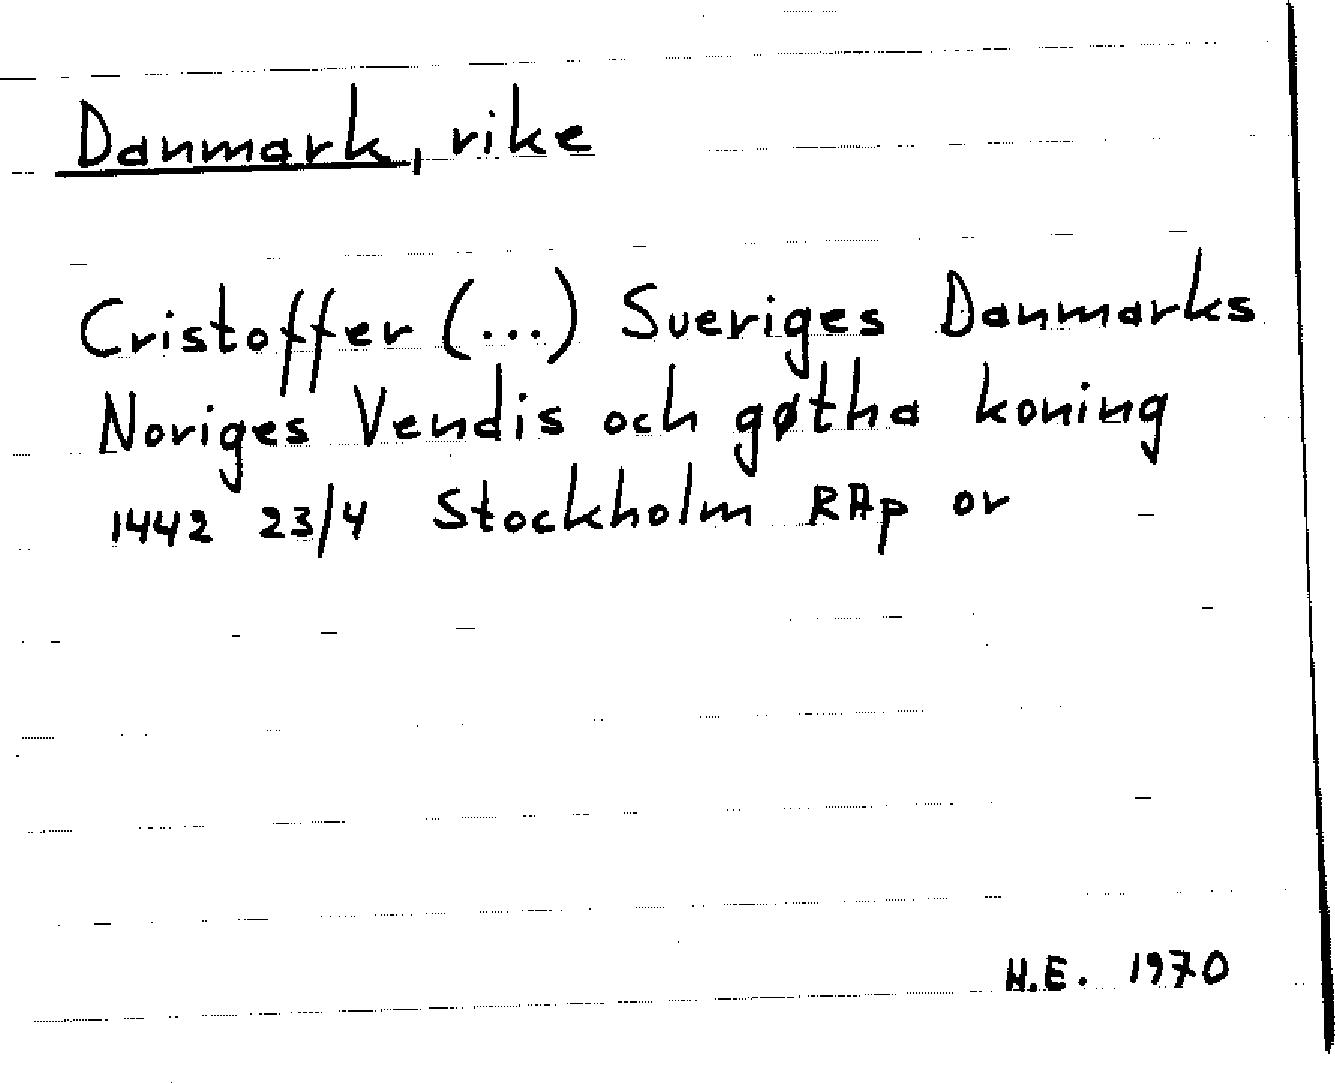 Danmark, rike
Cristoffer (...) Sveriges Danmarks
Noriges Vendis och gøtha koning
1442 23/4 Stockholm RAp or
H.E. 1970